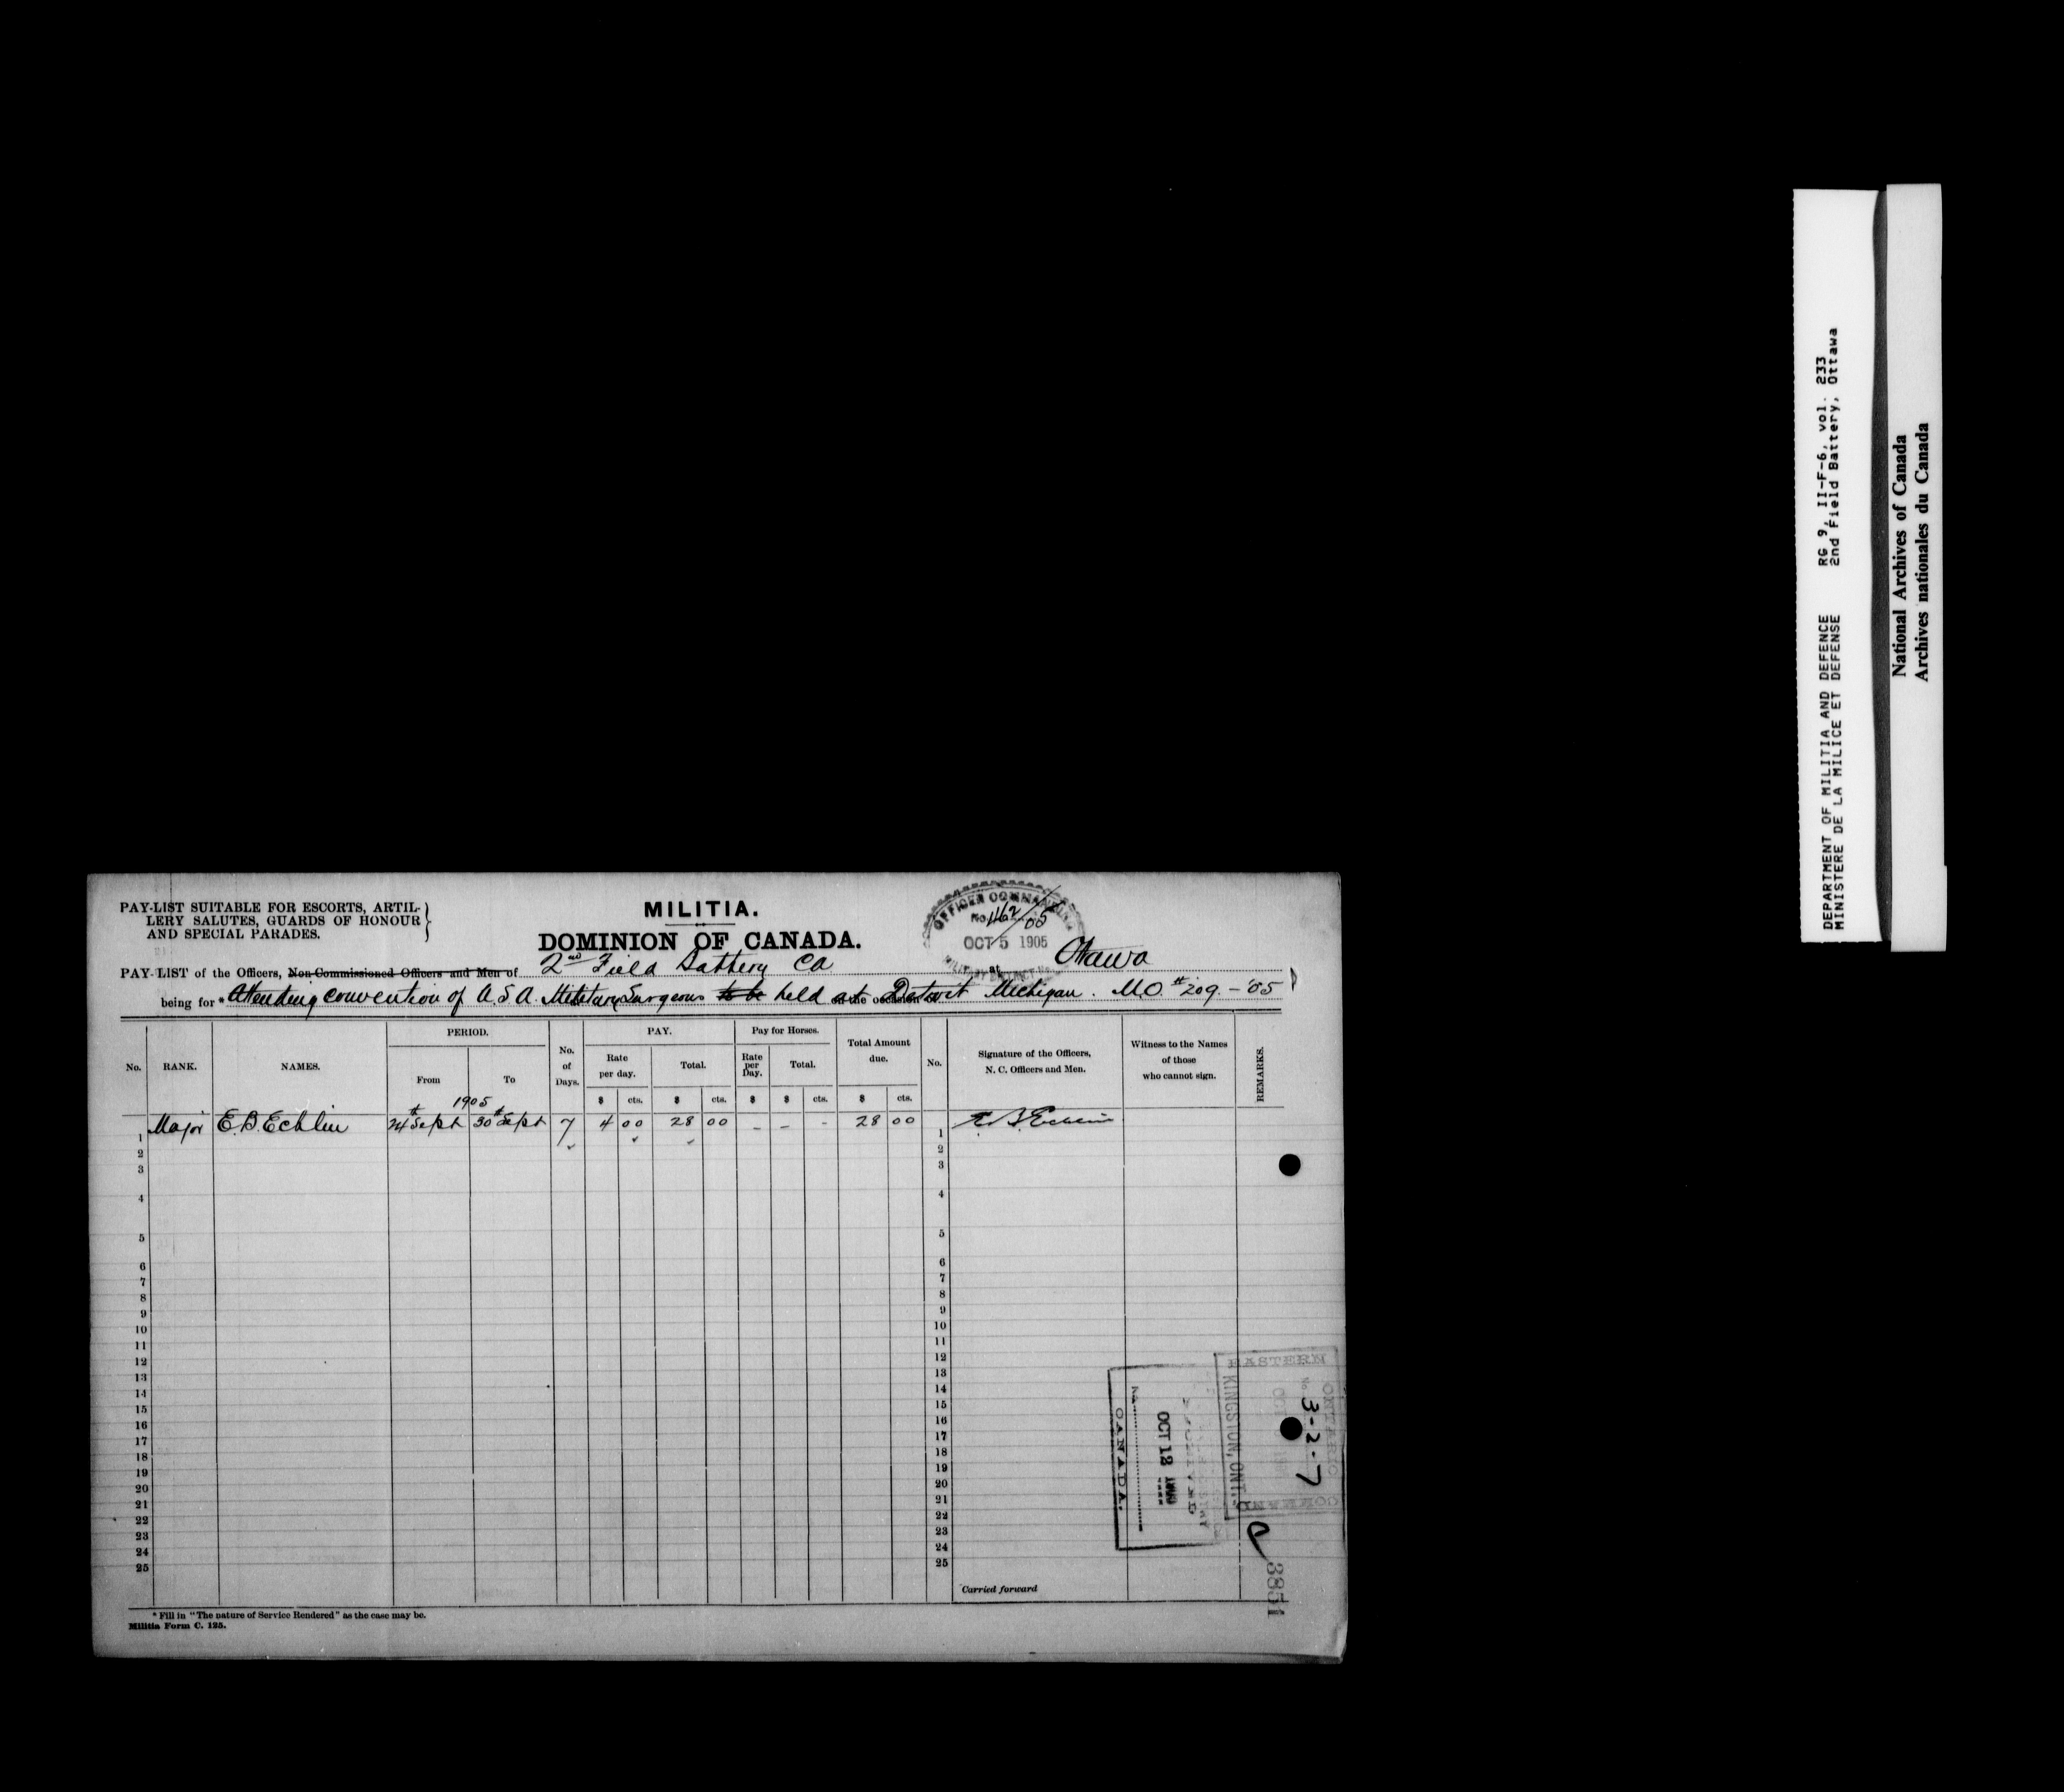 PAY-LIST SUITABLE FOR ESCORTS, ARTIL-
LERY SALUTES, GUARDS OF HONOUR
AND SPECIAL PARADES.
MILITIA.
DOMINION OF CANADA.
OFFICER COMMANDING
No. 462/05
OCT 5 1905
PAY-LIST of the Officers, Non-Commissioned Officers and Men of 2nd Field Battery CA at Ottawa
being for * Attending convention of A.S.A. Military Surgeons to be held at on the occasion of Detroit Michigan. M.O #209.-'05
No. RANK. NAMES. PERIOD. From To No. of Days. PAY. Rate per day. Total. Pay for Horses. Rate per Day. Total. Total Amount due. No. Signature of the Officers, N. C. Officers and Men. Witness to the Names of those who cannot sign. REMARKS.
$ cts. $ cts. $ $ cts. $ cts.
1905
1 Major E.B. Echlin 24th Sept 30th Sept 7 4 00 28 00 - - - 28 00 1 E B Echlin
2 2
3 3
4 4
5 5
6 6
7 7
8 8
9 9
10 10
11 11
12 12
13 13
14 14
15 15
16 16
17 17
18 18
19 19
20 20
21 21
22 22
23 23
24 24
25 25
Carried forward
* Fill in "The nature of Service Rendered" as the case may be.
Militia Form C. 125.
CANADA.
No.
OCT 12
EASTERN ONTARIO COMMAND
KINGSTON, ONT.
No. 3-2-7
3851
DEPARTMENT OF MILITIA AND DEFENCE RG 9, II-F-6, vol. 233
MINISTERE DE LA MILICE ET DEFENSE 2nd Field Battery, Ottawa
National Archives of Canada
Archives nationales du Canada